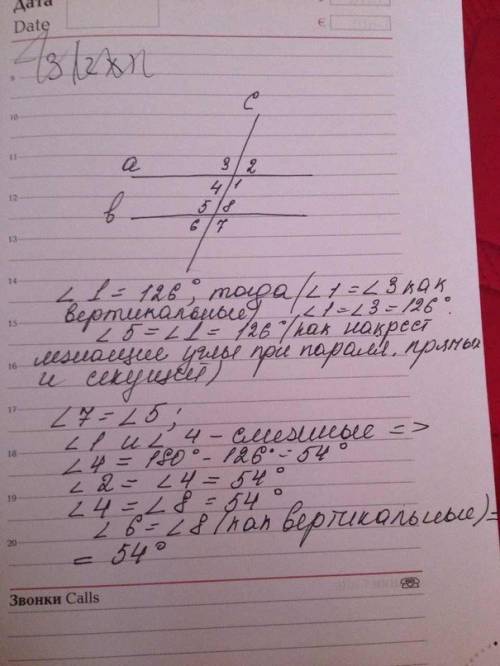 Дата
Date
€
€
9
10
c
11
a
3 2
4 1
12
в
5 8
6 7
13
14
∠1 = 126°, тогда (∠1 = ∠3 как
вертикальные) ∠1 = ∠3 = 126°.
15
∠5 = ∠1 = 126° (как накрест
лежащие углы при паралл. прямых
16
и секущей)
17
∠7 = ∠5;
∠1 и ∠4 - смежные =>
18
∠4 = 180° - 126° = 54°
∠2 = ∠4 = 54°
19
∠4 = ∠8 = 54°
∠6 = ∠8 (как вертикальные) =
20
= 54°
Звонки Calls